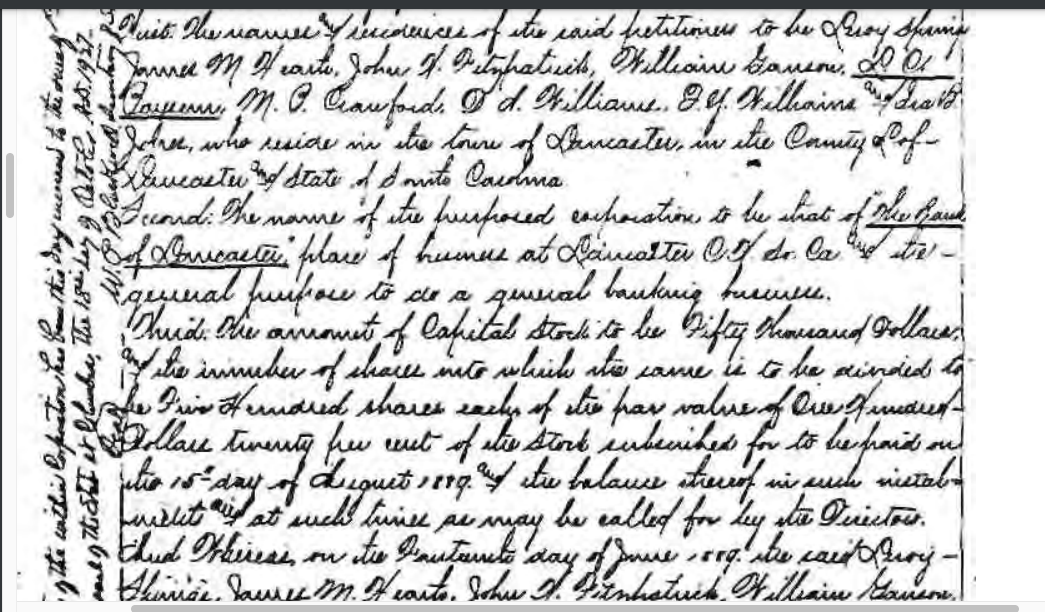 First. The names and residences of the said petitioners to be Leroy Springs
James M Heath, John H. Fitzpatrick, William Ganson, 
M. P. Crawford, D A. Williams, G. Y. Williams and Ira B
Jones, who reside in the town of Lancaster, in the County of
Lancaster and State of South Carolina
Second: The name of the purposed corporation to be that of "The Bank
of Lancaster," place of business at Lancaster C. H. So. Ca and the
general purpose to do a general banking business.
Third: The amount of Capital Stock to be Fifty Thousand Dollars,
and the number of shares into which the same is to be divided to
be Five Hundred shares each of the par value of One Hundred
Dollars twenty per cent of the Stock subscribed for to be paid on
the 15th day of August 1889. and the balance thereof in such instal-
ments and at such times as may be called for by the Directors.
And Whereas, on the day of June 1889. the said Leroy
Springs, James M. Heath, John H. Fitzpatrick, William Ganson,
of the within Corporation has been this day
the 18th day of October A.D. 1937.
W. P. Blackwell